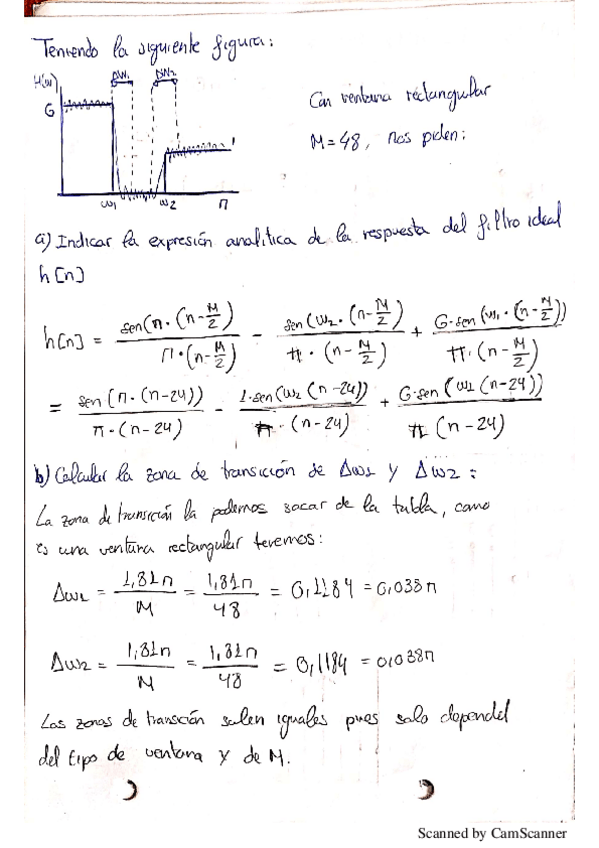 Teniendo la siguiente figura:
H(ω) ΔW1 ΔW2
G
1
ω1 ω2 π
Con ventana rectangular
M=48, nos piden:
a) Indicar la expresión analítica de la respuesta del filtro ideal
h[n]
h[n] = sen(π·(n-M/2)) / π·(n-M/2) - sen(ω2·(n-M/2)) / π·(n-M/2) + G·sen(ω1·(n-M/2)) / π·(n-M/2)
= sen(π·(n-24)) / π·(n-24) - 1·sen(ω2(n-24)) / π·(n-24) + G·sen(ω1(n-24)) / π(n-24)
b) Calcular la zona de transición de Δω1 y Δω2:
La zona de transición la podemos sacar de la tabla, como
es una ventana rectangular tenemos:
Δω1 = 1,81π / M = 1,81π / 48 = 0,1184 = 0,038π
Δω2 = 1,81π / M = 1,81π / 48 = 0,1184 = 0,038π
Las zonas de transición salen iguales pues solo dependel
del tipo de ventana y de M.
Scanned by CamScanner